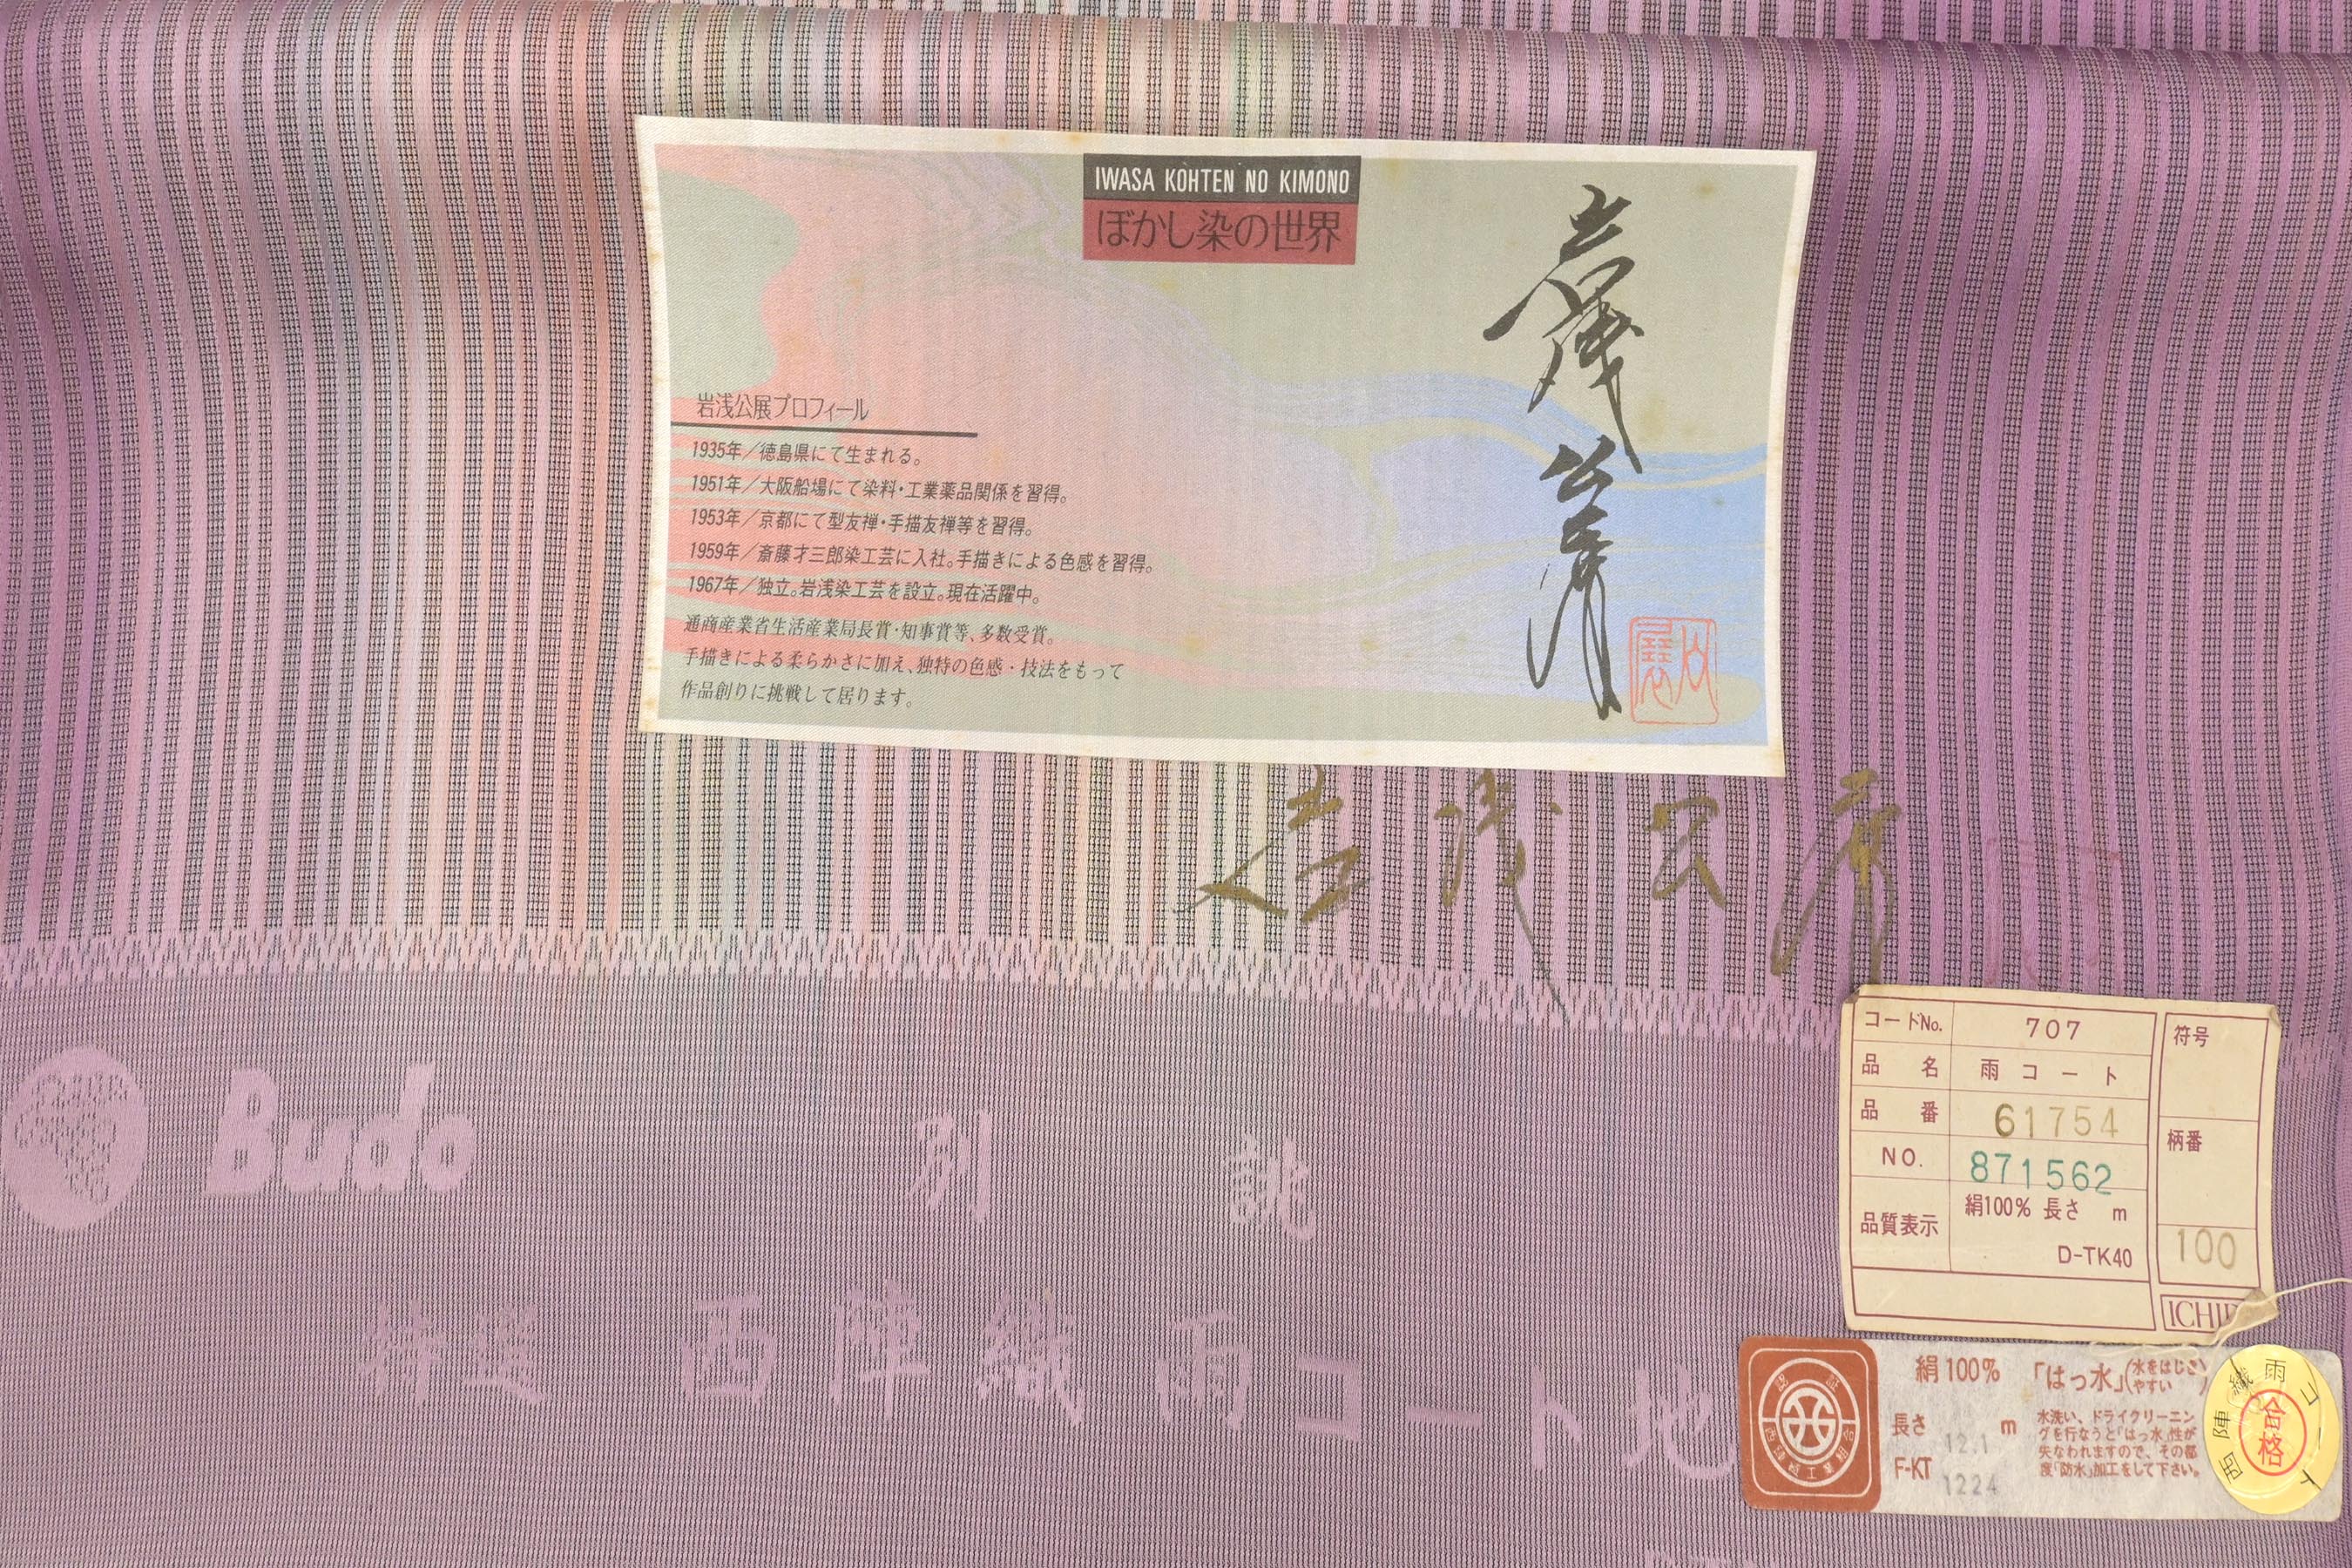 IWASA KOHTEN NO KIMONO
ぼかし染の世界
岩浅公展
公展
岩浅公展プロフィール
1935年／徳島県にて生まれる。
1951年／大阪船場にて染料・工業薬品関係を習得。
1953年／京都にて型友禅・手描友禅等を習得。
1959年／斎藤才三郎染工芸に入社。手描きによる色感を習得。
1967年／独立。岩浅染工芸を設立。現在活躍中。
通商産業省生活産業局長賞・知事賞等、多数受賞。
手描きによる柔らかさに加え、独特の色感・技法をもって
作品創りに挑戦して居ります。
岩浅公展
Budo
別誂
特選 西陣織雨コート地
コードNo. 707
品名 雨コート
品番 61754
NO. 871562
品質表示 絹100% 長さ m
D-TK40
符号
柄番
100
絹100%
「はっ水」(水をはじきやすい)
長さ 12.1 m
F-KT 1224
水洗い、ドライクリーニン
グを行なうと「はっ水」性が
失なわれますので、その都
度「防水」加工をして下さい。
認証
西陣織工業組合
西陣織雨コート
合格